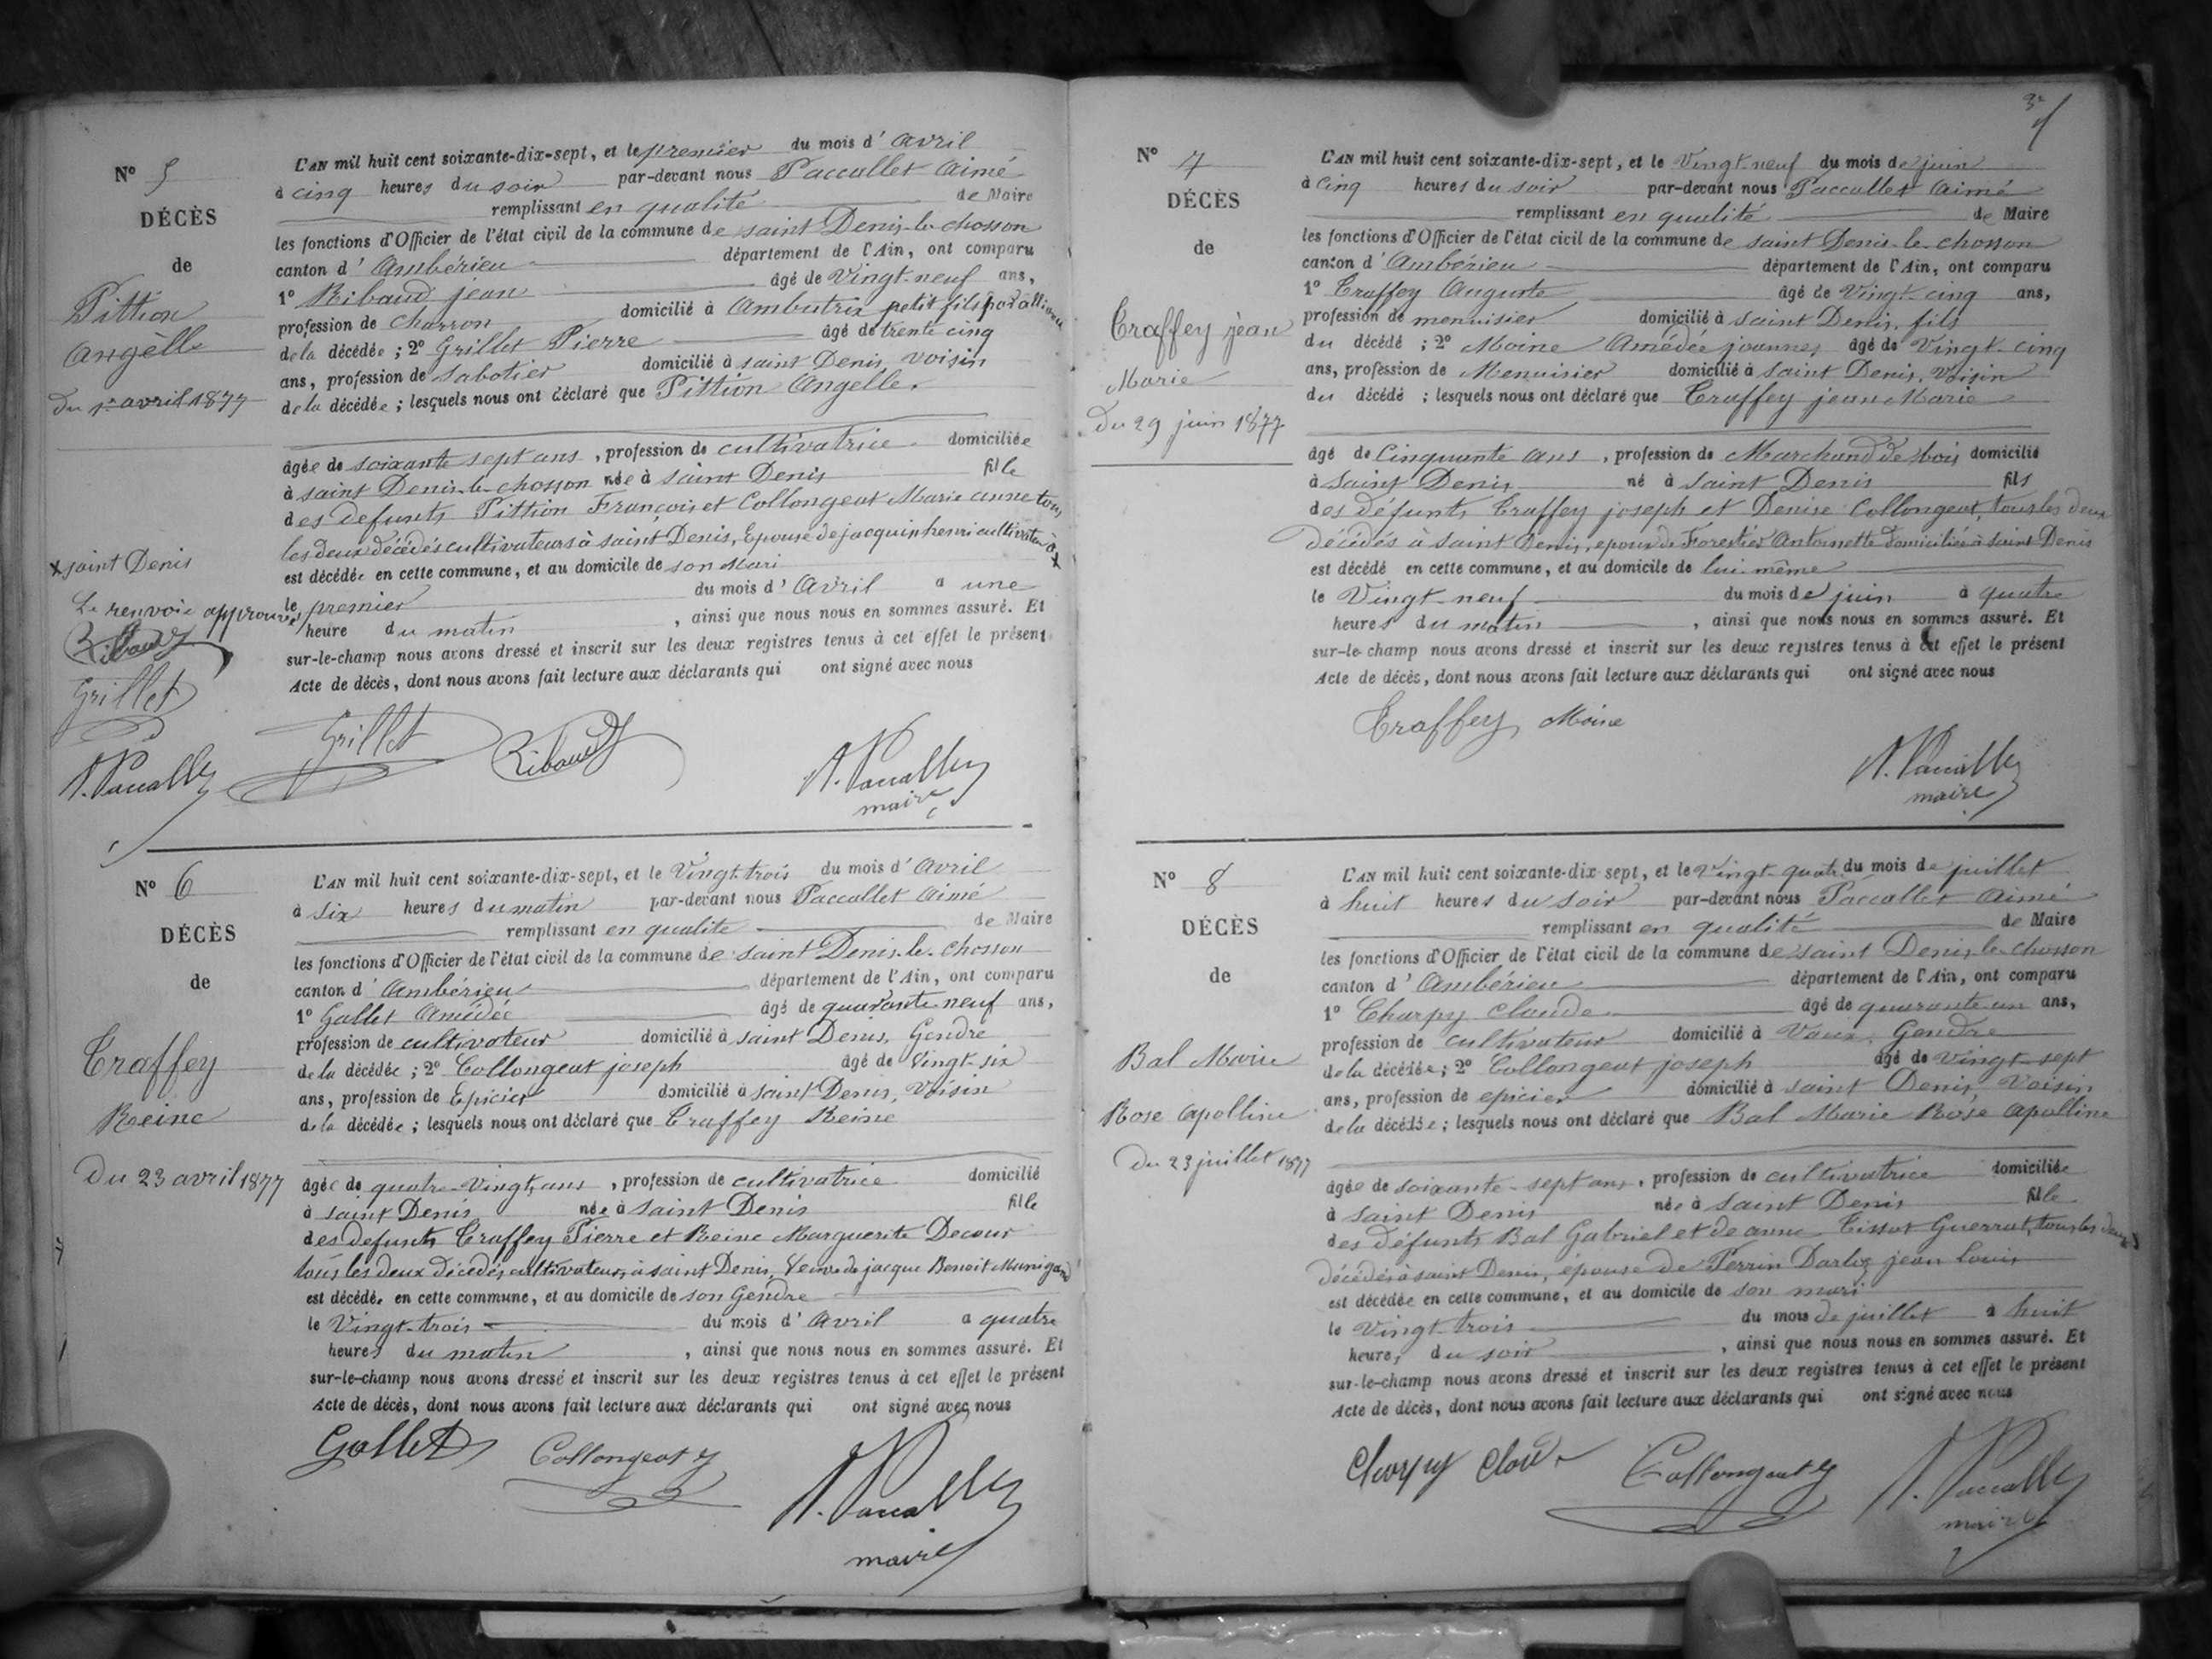 N° 5
DÉCÈS
de
Pittion
Angèlle
du 1er avril 1877
L'AN mil huit cent soixante-dix-sept, et le premier du mois d'avril
à cinq heures du soir par-devant nous Paccallet Aimé
remplissant en qualité de Maire
les fonctions d'Officier de l'état civil de la commune de saint Denis-le-chosson
canton d'Ambérieu département de l'Ain, ont comparu
1° Ribaud jean âgé de Vingt-neuf ans,
profession de charron domicilié à Ambutrix petit fils par alliance
de la décédée ; 2° Grillet Pierre âgé de trente cinq
ans, profession de Sabotier domicilié à saint Denis, voisin
de la décédée ; lesquels nous ont déclaré que Pittion Angelle
âgée de soixante sept ans, profession de cultivatrice domiciliée
à saint Denis-le-chosson née à saint Denis fille
des defunts Pittion François et Collongeat Marie anne tous
les deux décédés cultivateurs à saint Denis, Epouse de jacquin henri cultivateur à x
est décédée en cette commune, et au domicile de son Mari
le premier du mois d'Avril à une
heure du matin, ainsi que nous nous en sommes assuré. Et
sur-le-champ nous avons dressé et inscrit sur les deux registres tenus à cet effet le présent
Acte de décès, dont nous avons fait lecture aux déclarants qui ont signé avec nous
x saint Denis
Le renvoie approuvé
Ribaud
Grillet
A. Paccallet
Grillet Ribaud A. Paccallet
maire
N° 6
DÉCÈS
de
Traffey
Reine
Du 23 avril 1877
L'AN mil huit cent soixante-dix-sept, et le Vingt-trois du mois d'Avril
à six heures du matin par-devant nous Paccallet Aimé
remplissant en qualité de Maire
les fonctions d'Officier de l'état civil de la commune de saint Denis-le-chosson
canton d'Ambérieu département de l'Ain, ont comparu
1° Gallet Amédée âgé de quarante neuf ans,
profession de cultivateur domicilié à saint Denis, Gendre
de la décédée ; 2° Collongeat joseph âgé de Vingt-six
ans, profession de Epicier domicilié à saint Denis, Voisin
de la décédée ; lesquels nous ont déclaré que Traffey Reine
âgée de quatre-Vingts ans, profession de cultivatrice domicilié
à saint Denis née à saint Denis fille
des defunts Traffey Pierre et Reine Marguerite Decour
tous les deux décédés cultivateurs à saint Denis, Veuve de jacque Benoit Munigand
est décédée en cette commune, et au domicile de son Gendre
le Vingt-trois du mois d'Avril à quatre
heures du matin, ainsi que nous nous en sommes assuré. Et
sur-le-champ nous avons dressé et inscrit sur les deux registres tenus à cet effet le présent
Acte de décès, dont nous avons fait lecture aux déclarants qui ont signé avec nous
Gallet Collongeat j A. Paccallet
maire
3e
N° 7
DÉCÈS
de
Traffey jean
Marie
Du 29 juin 1877
L'AN mil huit cent soixante-dix-sept, et le Vingt-neuf du mois de juin
à cinq heures du soir par-devant nous Paccallet Aimé
remplissant en qualité de Maire
les fonctions d'Officier de l'état civil de la commune de saint Denis-le-chosson
canton d'Ambérieu département de l'Ain, ont comparu
1° Traffey Auguste âgé de Vingt-cinq ans,
profession de menuisier domicilié à saint Denis, fils
du décédé ; 2° Moine Amédée joannes âgé de Vingt-cinq
ans, profession de Menuisier domicilié à saint Denis, Voisin
du décédé ; lesquels nous ont déclaré que Traffey jean Marie
âgé de Cinquante ans, profession de Marchand de bois domicilié
à Saint Denis né à Saint Denis fils
des défunts Traffey joseph et Denise Collongeat, tous les deux
décédés à saint Denis, epoux de Forestier Antoinette domiciliés à saint Denis
est décédé en cette commune, et au domicile de lui même
le Vingt-neuf du mois de juin à quatre
heures du matin, ainsi que nous nous en sommes assuré. Et
sur-le-champ nous avons dressé et inscrit sur les deux registres tenus à cet effet le présent
Acte de décès, dont nous avons fait lecture aux déclarants qui ont signé avec nous
Traffey Moine
A. Paccallet
maire
N° 8
DÉCÈS
de
Bal Marie
Rose Apolline
Du 23 juillet 1877
L'AN mil huit cent soixante-dix-sept, et le Vingt-quatre du mois de juillet
à huit heures du soir par-devant nous Paccallet Aimé
remplissant en qualité de Maire
les fonctions d'Officier de l'état civil de la commune de saint Denis-le-chosson
canton d'Ambérieu département de l'Ain, ont comparu
1° Charpy Claude âgé de quarante-un ans,
profession de cultivateur domicilié à Vaux, Gendre
de la décédée ; 2° Collongeat joseph âgé de Vingt-sept
ans, profession de epicier domicilié à saint Denis, Voisin
de la décédée ; lesquels nous ont déclaré que Bal Marie Rose Apolline
âgée de soixante-sept ans, profession de cultivatrice domiciliée
à saint Denis née à saint Denis fille
des défunts Bal Gabriel et de anne Tissot Guerrat, tous les deux
décédés à saint Denis, épouse de Perrin Darloz jean Louis
est décédée en cette commune, et au domicile de son mari
le Vingt-trois du mois de juillet à huit
heures du soir, ainsi que nous nous en sommes assuré. Et
sur-le-champ nous avons dressé et inscrit sur les deux registres tenus à cet effet le présent
Acte de décès, dont nous avons fait lecture aux déclarants qui ont signé avec nous
Charpy Claude Collongeat j A. Paccallet
maire